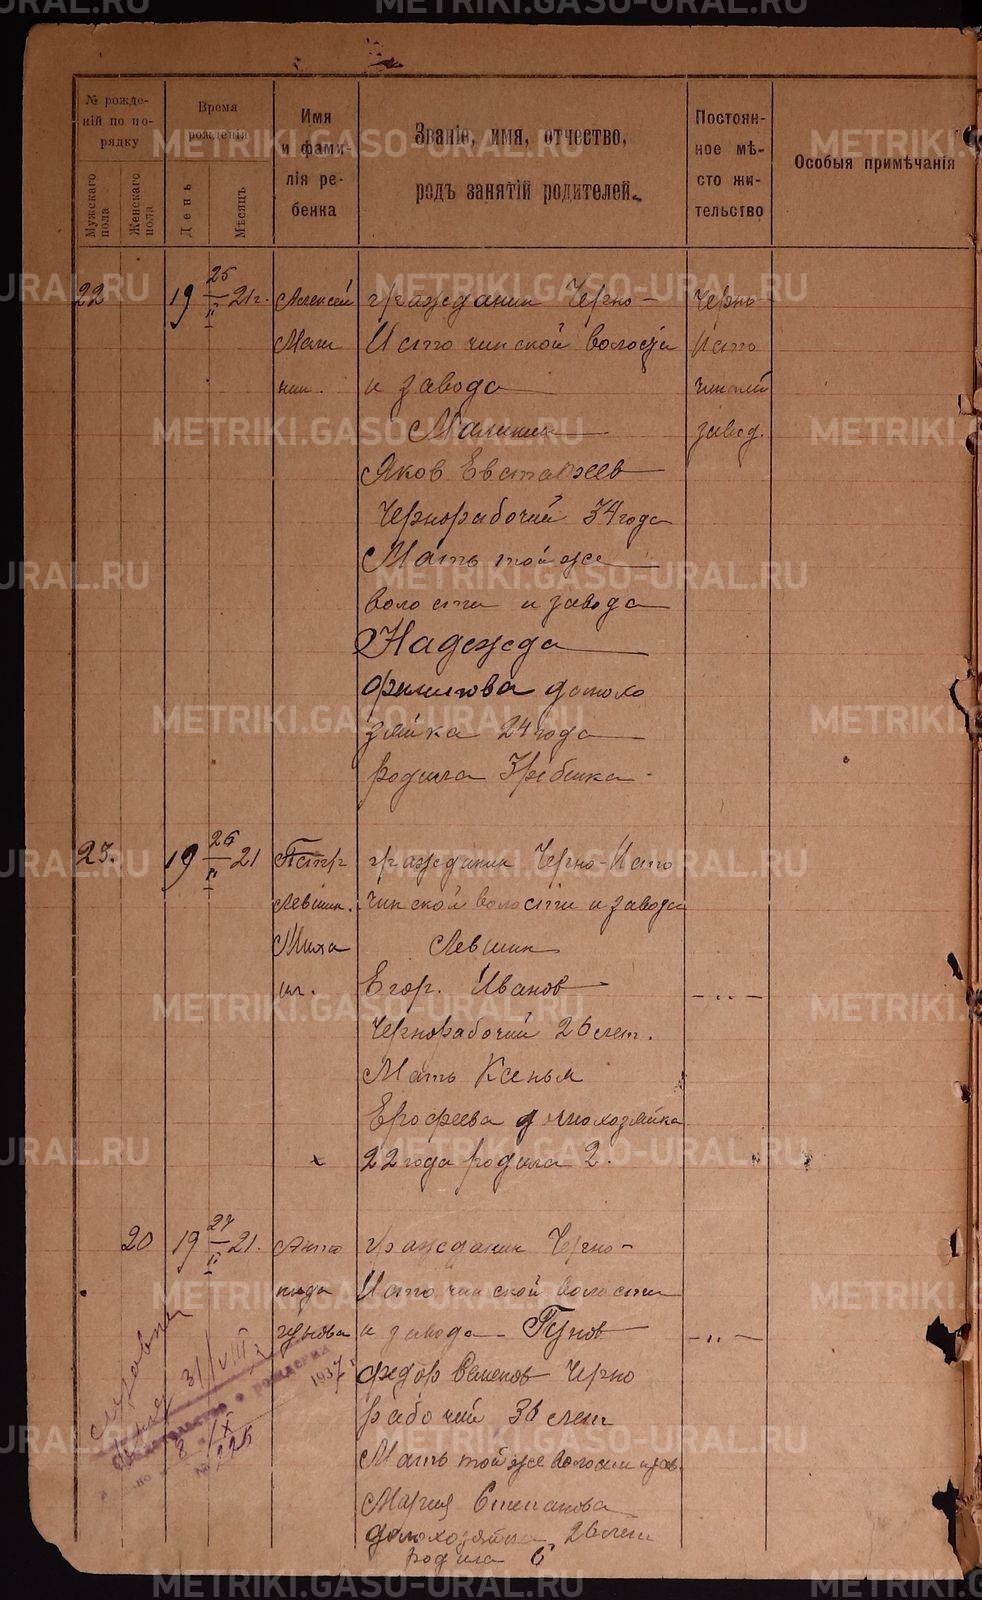 METRIKI.GASO-URAL.RU
№ рожде-
ній по по-
рядку
Мужскаго
пола
Женскаго
пола
Время
рожденія
День
Мѣсяцъ
Имя
и фами-
лія ре-
бенка
Званіе, имя, отчество,
родъ занятій родителей.
Постоян-
ное мѣ-
сто жи-
тельство
Особыя примѣчанія
22
19 25/II 21г.
Алексей
Мали
нин.
гражданин Черно-
Источинской волости
и завода
Малинин
Яков Евстафеев
Чернорабочий 34 года
Мать той же
волости и завода
Надежда
Филипова домохо
зяйка 24 года
родила 3 ребенка
Черно
Исто
чинский
завод.
23.
19 26/II 21
Петр
Левшин.
Миха
ил.
гражданин Черно-Исто
чинской волости и завода
Левшин
Егор. Иванов
Чернорабочий 26 лет.
Мать Ксенья
Ерофеева домохозяйка
22 года родила 2.
-„-
20
19 27/II 21.
Анто
нида
гражданин Черно-
Источинской волости
и завода Гунов
Федор Семенов Черно
рабочий 36 лет
Мать той же волости и зав.
Мария Степанова
домохозяйка 26 лет
родила 6
-„-
31/VIII
1937 г.
свидетельство о рождении
8/IX
№ 225
METRIKI.GASO-URAL.RU